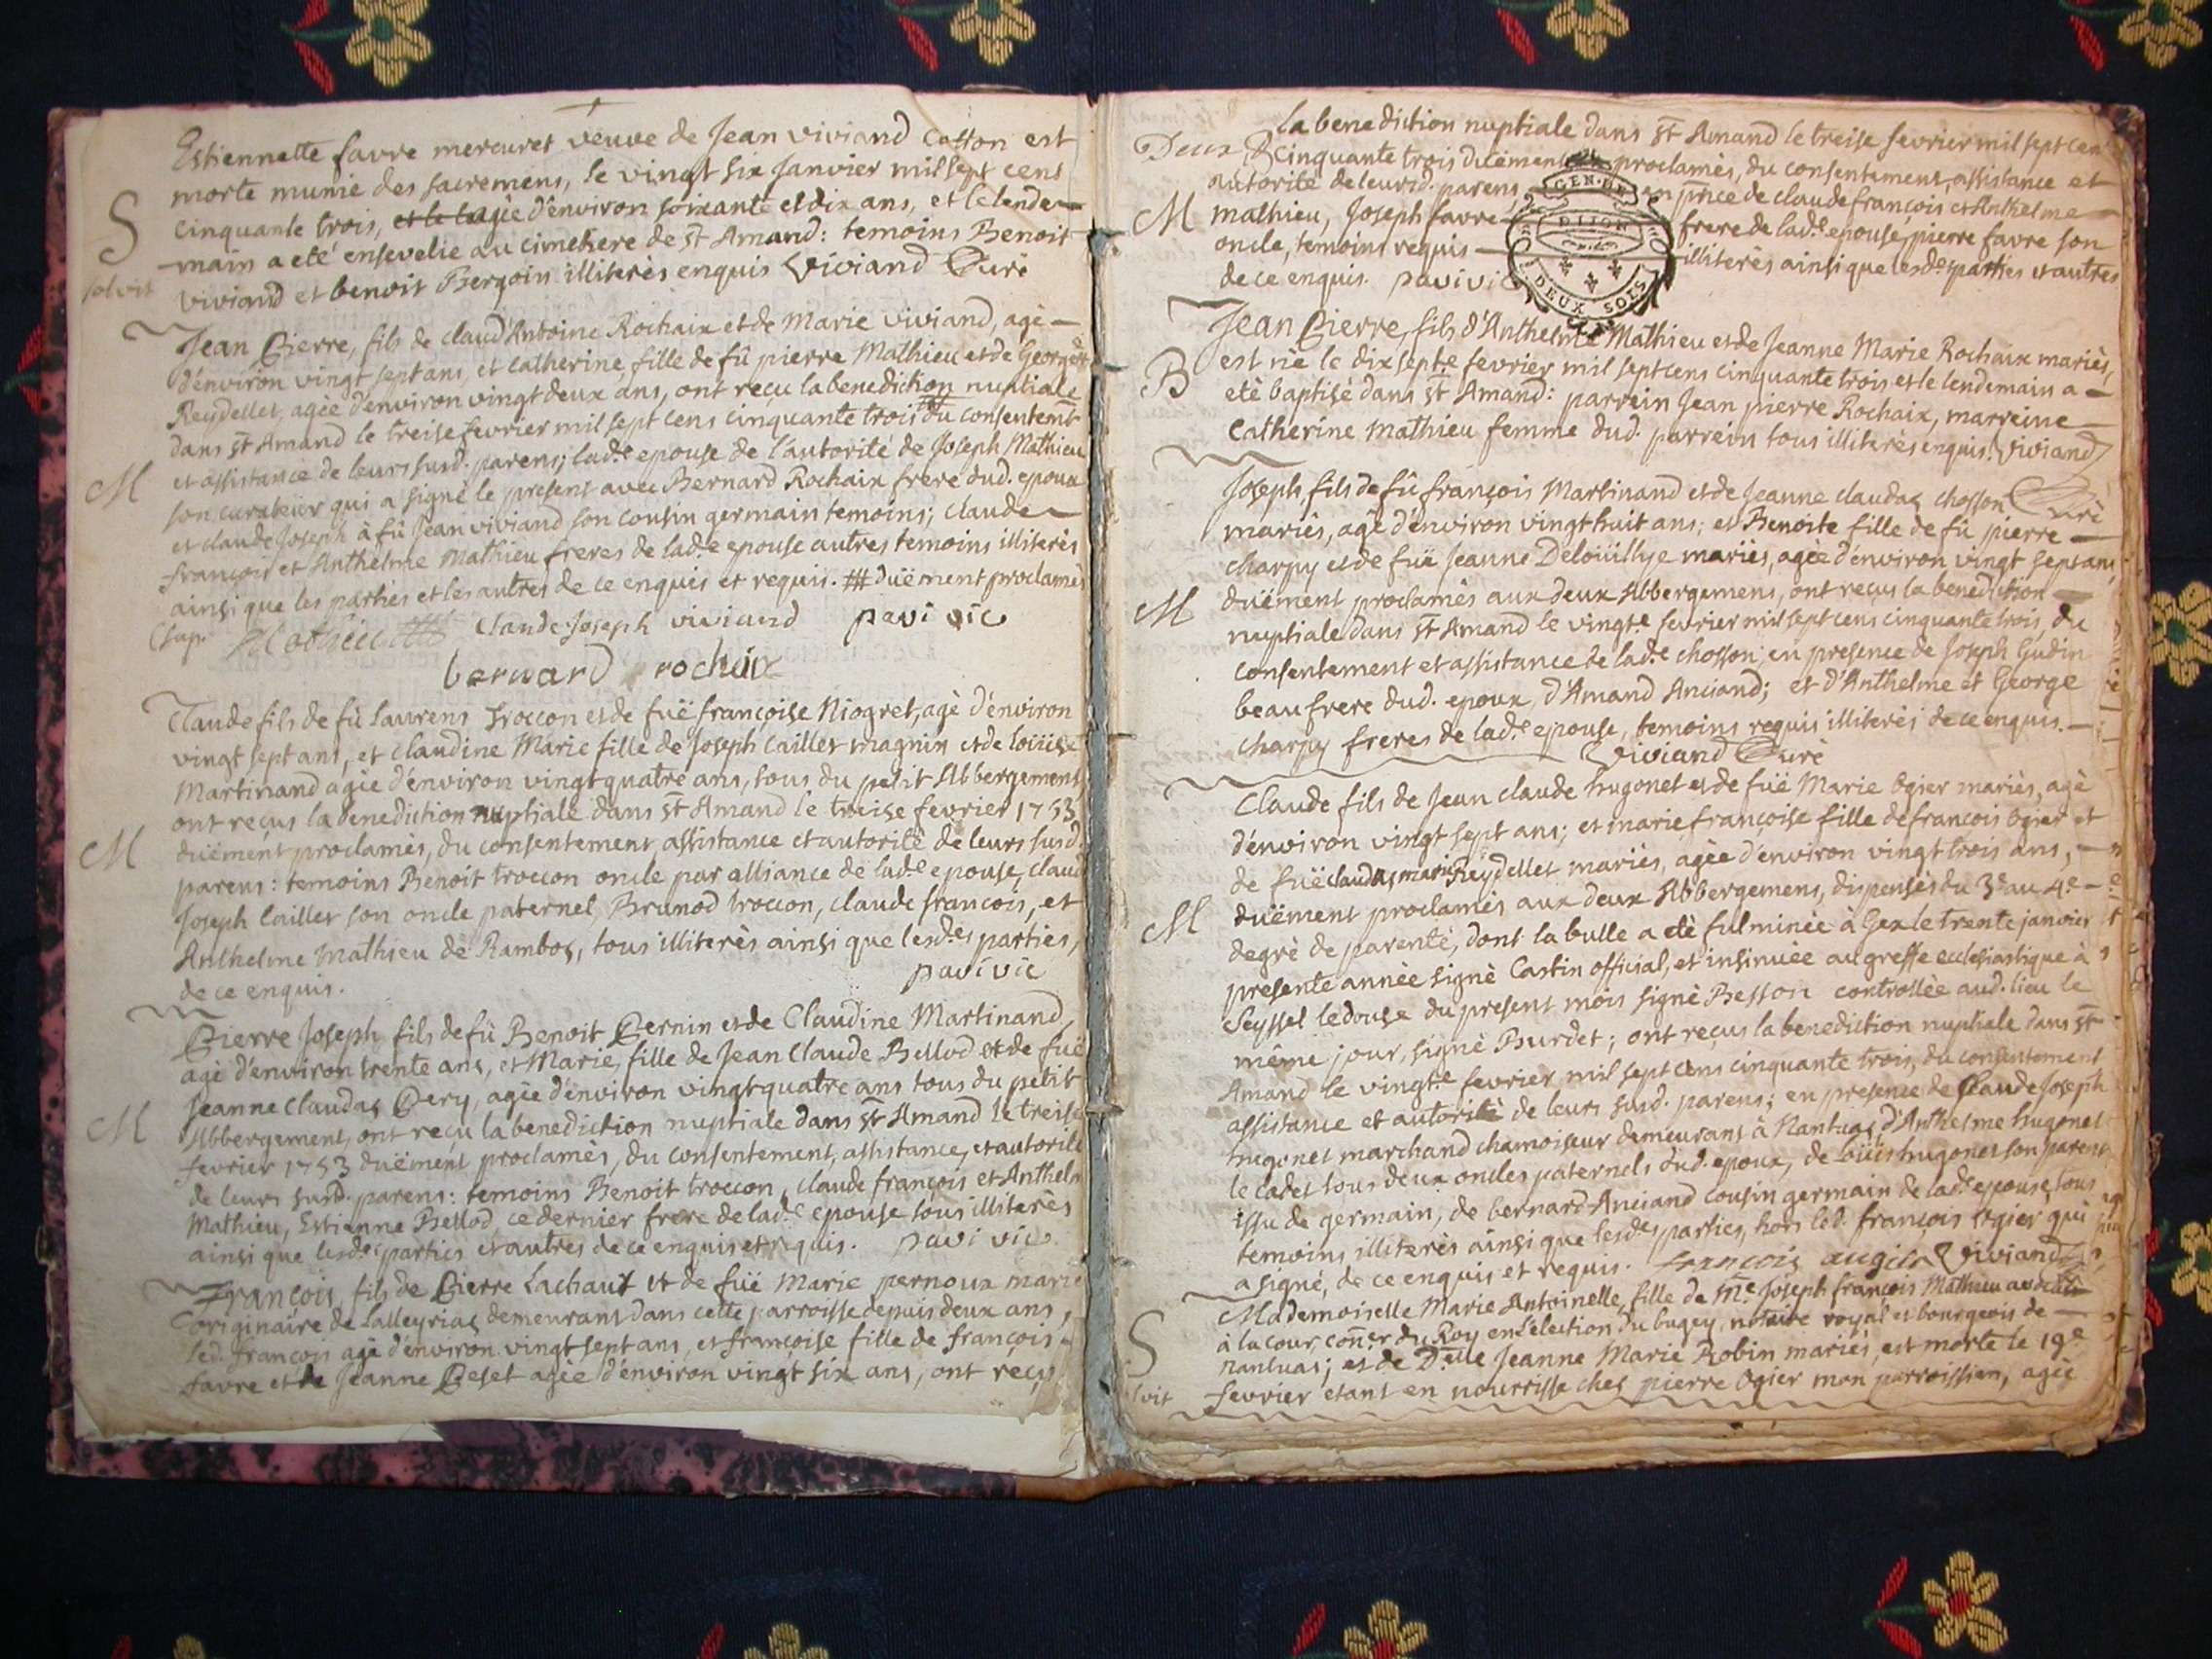 Estiennette favre mercuret veuve de Jean viviand Cotton est
morte munie des sacremens, le vingt six Janvier mil sept cens
cinquante trois, et le agèe d'environ soixante et dix ans, et le lende-
S
main a eté ensevelie au cimetiere de st Amand: temoins Benoit
solvit
viviand et benoit Bergoin illiterès enquis Viviand Curè
Jean Pierre, fils de claud'Antoine Rochaix et de Marie viviand, agè
d'environ vingt sept ans, et catherine fille de fû pierre Mathieu et de George
Reydellet, agèe d'environ vingt deux ans, ont recu la benediction nuptiale
dans st Amand le treise fevrier mil sept cens cinquante trois # du consentemt
et assistance de leurs susd. parens; lad.e epouse de l'autorité de Joseph Mathieu
M
son curateur qui a signè le present avec Bernard Rochaix frere dud. epoux
et claude Joseph à fû Jean viviand son cousin germain temoins; claude
françois et Anthelme Mathieu freres de lad.e epouse autres temoins illiterès
ainsi que les parties et les autres de ce enquis et requis. # duëment proclamès
Mathieu claude Joseph viviand pavi vic
bernard rochaix
Claude fils de fû Laurens Troccon et de fuë françoise Niogret, agè d'environ
vingt sept ans, et claudine Marie fille de Joseph Caillet magnin et de loüise
Martinand agèe d'environ vingt quatre ans, tous du petit Abbergement
ont recus la benediction nuptiale dans st Amand le treise fevrier 1753
M
duëment proclamès, du consentement, assistance et autoritè de leurs susd.
parens: temoins Benoit troccon oncle par alliance de lad.e epouse, claud
Joseph Caillet son oncle paternel, Brunod troccon, claude francois, et
Anthelme Mathieu de Rambos, tous illiterès ainsi que lesd.es parties,
de ce enquis. pavi vic
Pierre Joseph fils de fû Benoit Pernin et de Claudine Martinand,
agè d'environ trente ans, et Marie, fille de Jean Claude Bellod et de fuë
Jeanne Claudas Pery, agèe d'environ vingt quatre ans tous du petit
M
Abbergement, ont reçu la benediction nuptiale dans st Amand le treise
fevrier 1753 duëment proclamès, du consentement, assistance, et autorité
de leurs susd. parens: temoins Benoit troccon, claude françois et Anthelm
Mathieu, Estienne Bellod, ce dernier frere de lad.e epouse tous illiterès
ainsi que lesd.es parties et autres de ce enquis et requis. pavi vic
François fils de Pierre Lachaut et de fuë Marie pernoux marié
originaire de Lalleyrias demeurant dans cette parroisse depuis deux ans,
led. François agè d'environ vingt sept ans, et françoise fille de françois
favre et de Jeanne Peset agèe d'environ vingt six ans, ont reçu
la benediction nuptiale dans st Amand le treise fevrier mil sept cen
Deux
cinquante trois duëment proclamès, du consentement, assistance et
autorité de leursd. parens, en prnce de claude francois et Anthelme
M
mathieu, Joseph favre frere de lad.e epouse, pierre favre son
oncle, temoins requis illiterès ainsi que lesd.es parties et autres
de ce enquis. pavi vic
GEN. DE
DIJON
DEUX SOLS
Jean Pierre, fils d'Anthelme Mathieu et de Jeanne Marie Rochaix mariès,
est nè le dix sept.e fevrier mil sept cens cinquante trois et le lendemain a
B
etè baptisè dans st Amand: parrein Jean pierre Rochaix, marreine
Catherine Mathieu femme dud. parrein tous illiterès enquis. Viviand
Curè
Joseph fils de fû françois Martinand et de Jeanne claudas chosson
mariès, agè d'environ vingt huit ans; et Benoite fille de fû pierre
charpy et de fuë Jeanne Deloüillye mariès, agèe d'environ vingt sept ans
M
duëment proclamès aux deux Abbergemens, ont reçus la benediction
nuptiale dans st Amand le vingt.e fevrier mil sept cens cinquante trois, du
consentement et assistance de lad.e chosson; en presence de Joseph Gudin
beaufrere dud. epoux, d'Amand Anciand; et d'Anthelme et George
charpy freres de lad.e epouse, temoins requis illiterès de ce enquis.
Viviand Curè
Claude fils de Jean claude hugonet et de fuë Marie Ogier mariès, agè
d'environ vingt sept ans; et marie françoise fille de francois Ogier et
de fuë claudas marie Reydellet mariès, agèe d'environ vingt trois ans,
duëment proclamès aux deux Abbergemens, dispensès du 3e au 4e
M
degrè de parenté, dont la bulle a etè fulminèe à Gex le trente janvier
presente annèe signè Castin official, et insinuèe au greffe ecclesiastique à
Seyssel le douse du present mois signè Besson controllèe aud. lieu le
même jour, signè Burdet; ont reçus la benediction nuptiale dans st
Amand le vingt.e fevrier mil sept cens cinquante trois, du consentement
assistance et autorité de leurs susd. parens; en presence de Claude Joseph
hugonet marchand chamoiseur demeurant à Nantuas, d'Anthelme hugonet
le cadet tous deux oncles paternels dud. epoux, de loüis hugonet son parent
issu de germain, de bernard Anciand cousin germain de lad.e epouse, tous
temoins illiterès ainsi que lesd.es parties, hors led. françois Ogier qui
a signè, de ce enquis et requis. francois augier Viviand
Mademoiselle Marie Antoinette, fille de Me Joseph françois Mathieu
à la cour, con.er du Roy en l'élection du bugey, notaire royal et bourgeois de
S
nantuas; et de D.elle Jeanne Marie Robin mariès, est morte le 19e
solvit
fevrier etant en nourrisse ches pierre Ogier mon parroissien, agèe